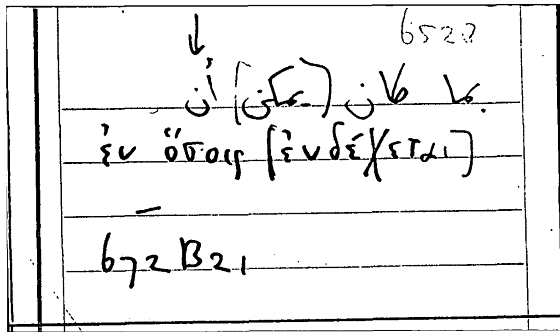 6528
ما كان (يمكن) أن
ἐν ὅσοις [ἐνδέχεται]
672 B21